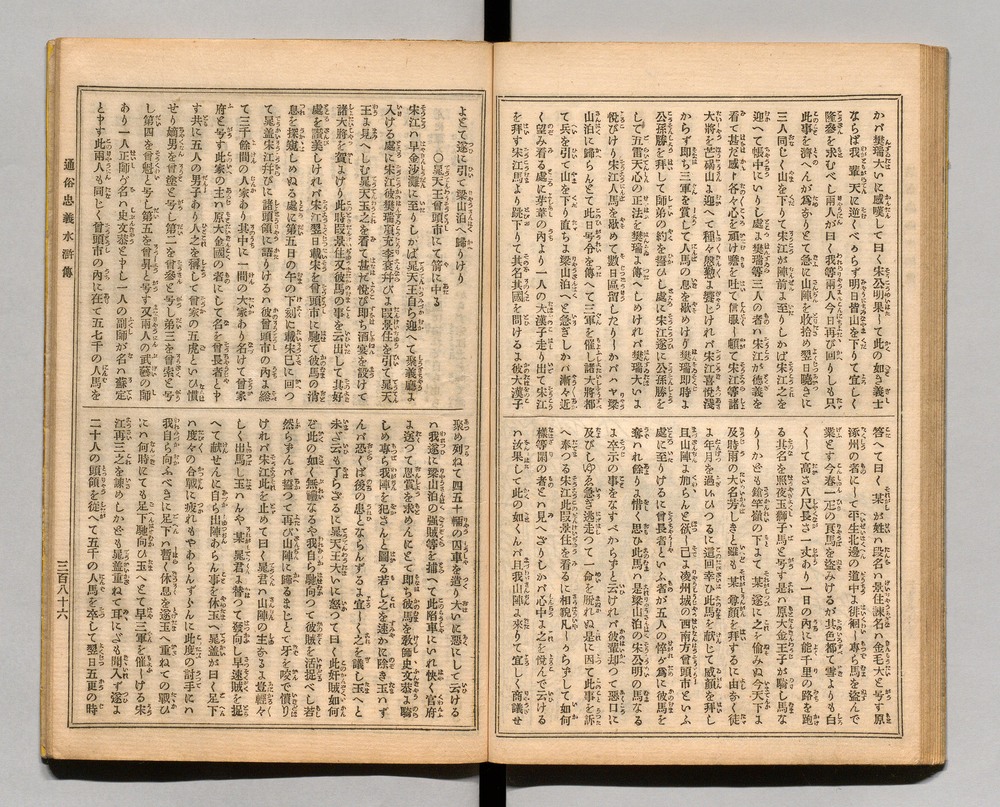 かバ樊瑞大いに感嘆して曰く宋公明果して此の如き義士
ならば我輩天に逆くべからず明日皆山を下りて宜しく
隆參を求むべし兩人が曰く我等兩人今日再び回りしも只
此事を濟へんが爲ありとて急に山陣を收拾め翌日曉きに
三人同じく山を下りて宋江が陣前よ至りしかば宋江之を
迎へて帳中にいりし處よ樊瑞等三人の者ハ宋江が德義を
看て甚だ感ト各々心を頑け膽を吐て信服し頓て宋江等諸
大將を芒碭山よ迎へて種々慇懃よ饗じけれバ宋江喜悅淺
からず即ち三軍を賞して人馬の息を歇めけり樊瑞即時よ
公孫勝を拜して師弟の約を誓ひし處に宋江遂に公孫勝を
して五雷天心の正法を樊瑞よ傳へしめければ樊瑞大いよ
悅びけり宋江人馬を歇めて數日區留したりーかハヤ梁
山泊に歸らんとて此日号令を傳へて三軍を催し諸大將都
て兵を引て山を下り直ちよ梁山泊へと急ぎしかバ漸々近
く望み看る處に芽葦の內より一人の大漢子走り出て宋江
を拜す宋江馬より跳下りて其名其國を問けるよ彼大漢子
答へて曰く某が姓ハ段名ハ景住諢名ハ金毛犬と号す原
涿州の者にして平生北邊の道中よ徘徊し專ら馬を盜んで
業とす今春一疋の頁馬を盜みけるが其色都て雪よりも白
くして高さ八尺長さ一丈あり一日の內に能千里の路を跑
る其名を照夜玉獅子馬と号す是ハ原大金王子が騎し馬な
りしかども鎗竿嶺の下よて某遂に之を偸みぬ今天下よ
及時雨の大名芳しきと雖も某尊顏を拜するに由なく徒
よ年月を過ぬひつるに這回幸ひ此馬を献じて威顏を拜し
且山陣よ加らんと欲し已よ凌州城の西南方曾頭市といふ
處に至りけるに曾長者といふ者が五人の悴が爲に彼馬を
奪れける餘りよ惜く思ひ此馬ハ是梁山泊の宋公明の馬なる
よ卒示の事をなすべからずと云けれバ彼輩却つて惡口に
及びしゆゑ急ぎ逃走つて一命を脫れぬ是に因て此事を訴
へ奉つる宋江此段景住を看るに相貌凡しからずして如何
樣等閑の者とハ見へざりしかバ心中よ之を悅んで云ける
ハ汝果して此の如くんバ且我山陣よ來りて宜しく商議せ
よとて遂に引て梁山泊へ歸りけり
〇晁天王曾頭市にて箭に中る
宋江ハ早金沙灘に至りしかば晁天王自ら迎へて聚義廳よ
入ける處に宋江彼樊瑞項充李衮并びよ段景住を引て晁天
王よ見へしむ晁天王之を看て甚だ悅び即ち酒宴を設けて
諸大將を賀よけり此時段景住又彼馬の事を云出して其好
處を讚美しけれバ宋江翌日戴宋を曾頭市に馳て彼馬の消
息を探聴しめぬる處に第五日の午の下刻に戴宋巳に回つ
て晁蓋宋江并びに諸頭領に語りけるハ彼曾頭市の內よ總
て三千餘間の人家あり其中に一間の大家あり名けて曾家
府と号す此家の主ハ原大金國の者にして名を曾長者と申
す共に五人の男子あり人之を稱して曾家の五虎といひ慣
せり嫡男を曾塗と号し第二を曾參と号し第三を曾索と号
し第四を曾魁と号し第五を曾昇と号す又兩人の武藝の師
あり一人正師が名ハ史文恭と申し一人の副師が名ハ蘇定
と申す此兩人も同じく曾頭市の內に在て五七千の人馬を
聚め列ねて四五十輛の囚車を造り大いに惡にして云ける
ハ我遂に梁山泊の强賊等を捕へて此陷車にいれ快く官府
よ送つて恩賞を求めんなどとて即ち彼馬を敎師史文恭よ騎
しめ專ら我陣を犯さんと圖る若し之を速かに除き玉ハず
んバ恐くば後の患とならんずるよ宜しく之を議し玉へと
未だ云も了らざるに晁天王大いに怒つて曰く此奸賊如何
ぞ此の如く無禮なるや我自ら馳向つて彼賊を活捉べし若
然らずんバ誓つて再び山陣に歸るまじとて牙を咬で憤り
けれバ宋江此を止めて曰く晁君ハ山陣の主なるよ豈輕々
しく出馬し玉ハんや某晁君よ替つて發向し早速賊を捉
へて献ぜんに自ら出陣あらん事を休玉へ晁蓋が曰く足下
ハ度々の合戰に疲れやあらんずらんに此度の討手にハ
我自ら向ふべきに足下ハ暫く休息を遂玉へ重ねての戰ひ
にハ何時にても足下馳向ひ玉へとて早三軍を催しける宋
江再三之を諫めしかども晁蓋重ねて耳にだも聞入ず遂よ
二十人の頭領を從へて五千の人馬を卒して翌日五更の時
通俗忠義水滸傳
三百八十六